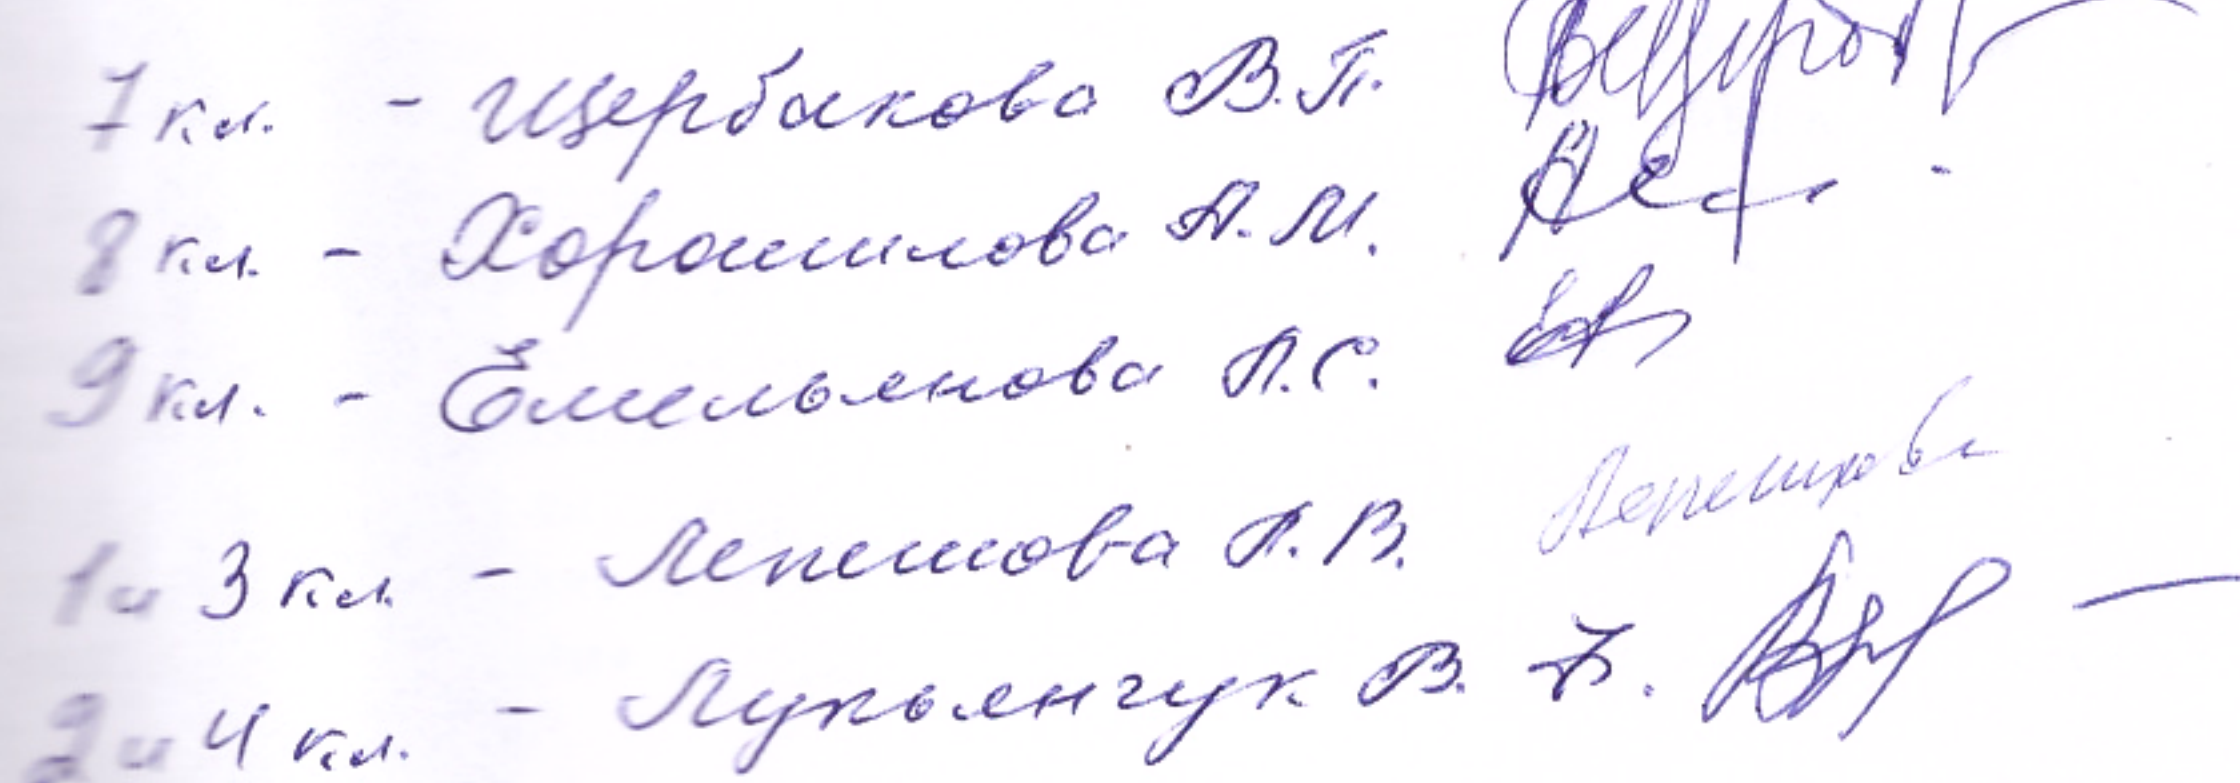 7 кл. - Щербакова В.П.
8 кл. - Хорошилова А.М.
9 кл. - Емельянова А.С.
1 и 3 кл. - Лепешова А.В.
2 и 4 кл. - Лукьянчук В.